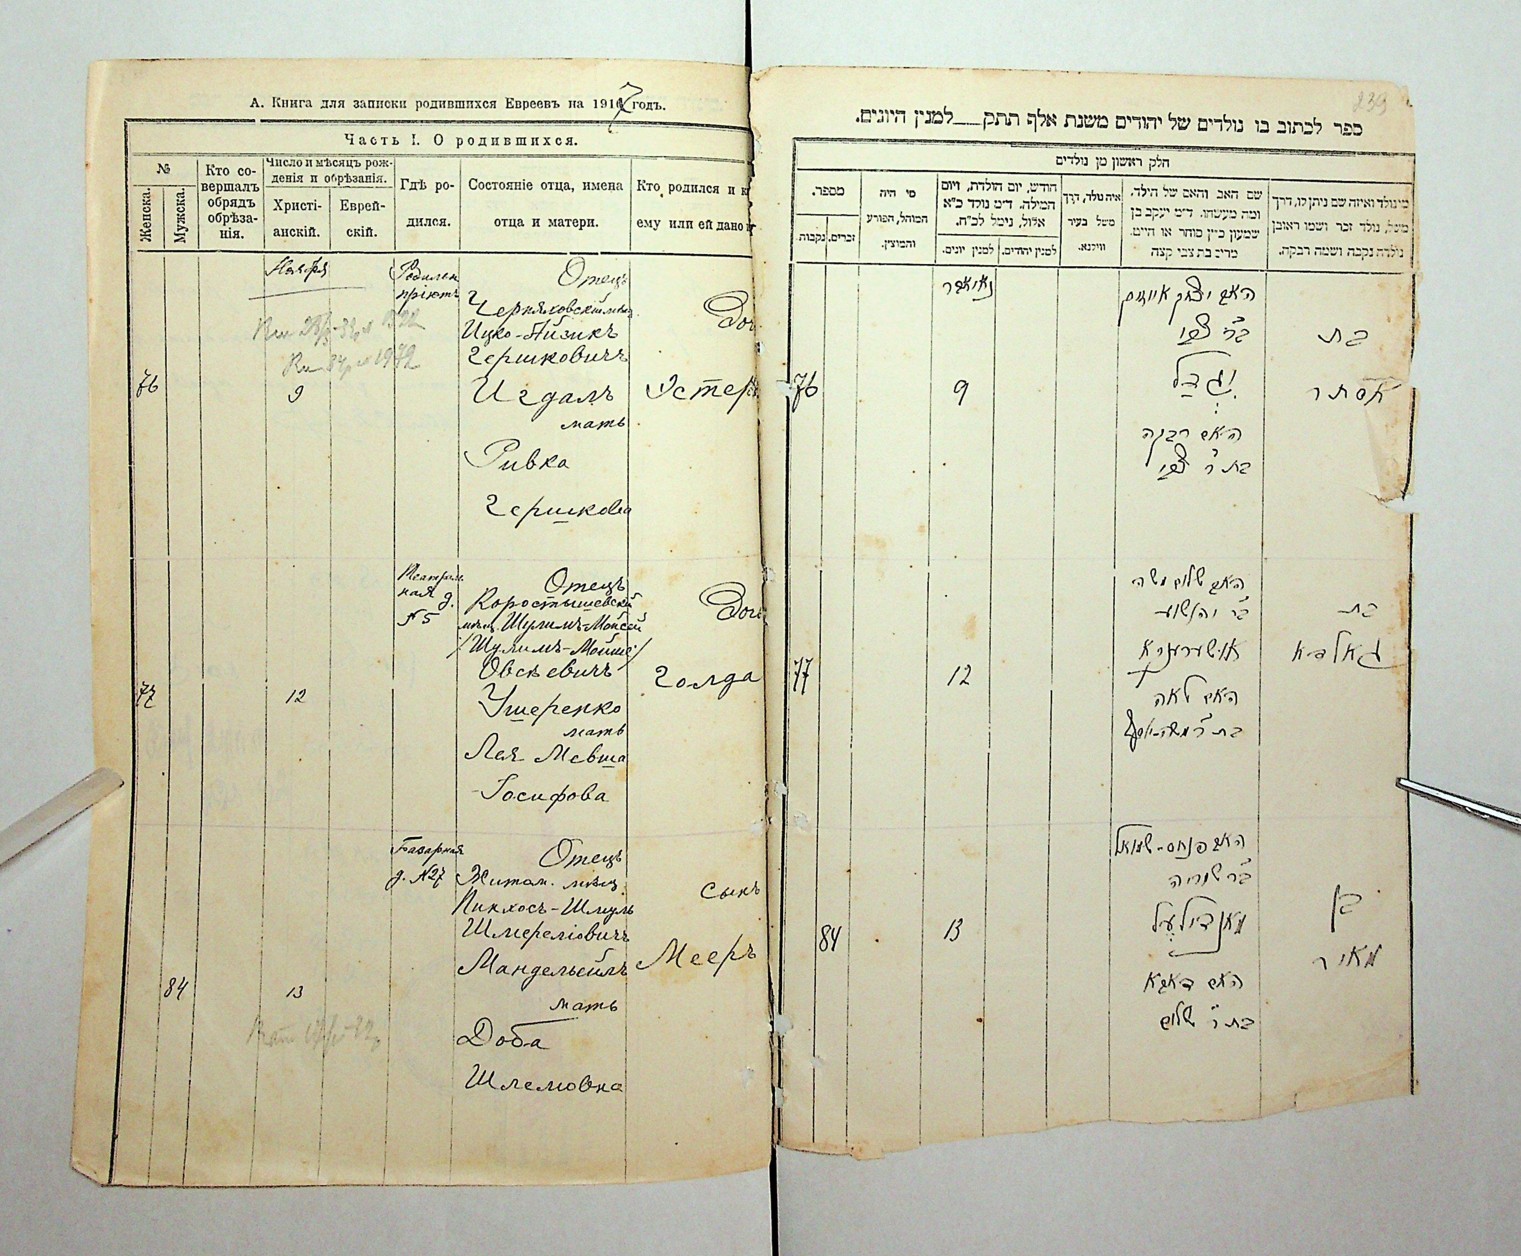 А. Книга для записки родившихся Евреевъ на 1917 годъ.
Часть I. О родившихся.
№
Женска.
Мужска.
Кто со-
вершалъ
обрядъ
обрѣза-
нія.
Число и мѣсяцъ рож-
денія и обрѣзанія.
Христі-
анскій.
Еврей-
скій.
Гдѣ ро-
дился.
Состояніе отца, имена
отца и матери.
Кто родился и к
ему или ей дано
Ноября
76
9
Родилен
пріютъ
Отецъ
Черняховскій мѣщ
Ицко-Айзикъ
Гершковичъ
Игдалъ
мать
Ривка
Гершкова
Доч
Эстеръ
77
12
Театраль
ная д.
№5
Отецъ
Коростышевскій
мѣщ. Шулимъ-Мойсей
/Шулимъ-Мойше/
Овсѣевичъ
Ушеренко
мать
Лея Мевша
Іосифова
Дочь
Голда
84
13
Базарная
д. №27
Отецъ
Житом. мѣщ.
Пинхосъ-Шмуль
Шмеріовичъ
Мандельейлъ
мать
Доба
Шлемовна
сынъ
Мееръ
239
ספר לכתוב בו נולדים של יהודים משנת אלף תתק___למנין היונים.
חלק ראשון מן נולדים
מספר.
זכרים.
נקבות.
מי היה
המוהל, הפורע
והמוצץ.
חודש, יום הולדת, ויום
המילה. ד״מ נולד כ״א
אלול, נימל לכ״ח.
למנין יונים.
למנין יהודים.
איה נולד, דרך
משל בעיר
ווילנא.
שם האב והאם של הילד,
ומה מעשהו. ד״מ יעקב בן
שמעון כ״ץ סוחר או חייט.
מרים בת צבי קצה
מי נולד ואיזה שם ניתן לו, דרך
משל, נולד זכר ושמו ראובן
נולדה נקבה ושמה רבקה.
נאיאבר
76
9
האב יצחק אייזיק
בר׳ צבי
יגדל
האם רבקה
בת ר׳ צבי
בת
אסתר
77
12
האב שלום משה
בר׳ יהושע
אושערענקא
האם לאה
בת ר׳ משה-יוסף
בת
גאלדא
84
13
האב פנחס-שמואל
בר׳ שמריה
מאנדילעיל
האם דאבא
בת ר׳ שלום
בן
מאיר